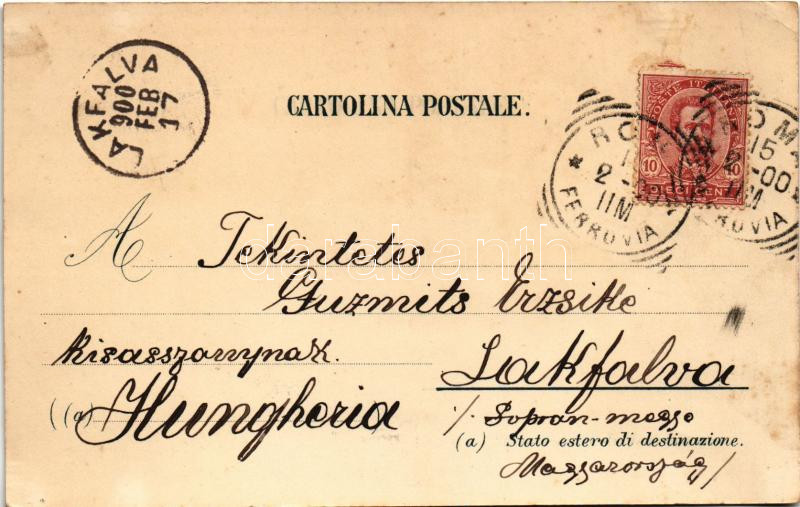 LAKFALVA
900
FEB
17
CARTOLINA POSTALE.
POSTE ITALIANE
10 10
ROMA
2-00
11M
FERROVIA
ROMA
15
2-00
11M
FERROVIA
A Tekintetes
Guzmits Erzsike
kisasszonynak.
Lakfalva
(a) Hungheria
/: Sopron-megye
(a) Stato estero di destinazione.
Magyarország /
darabanth